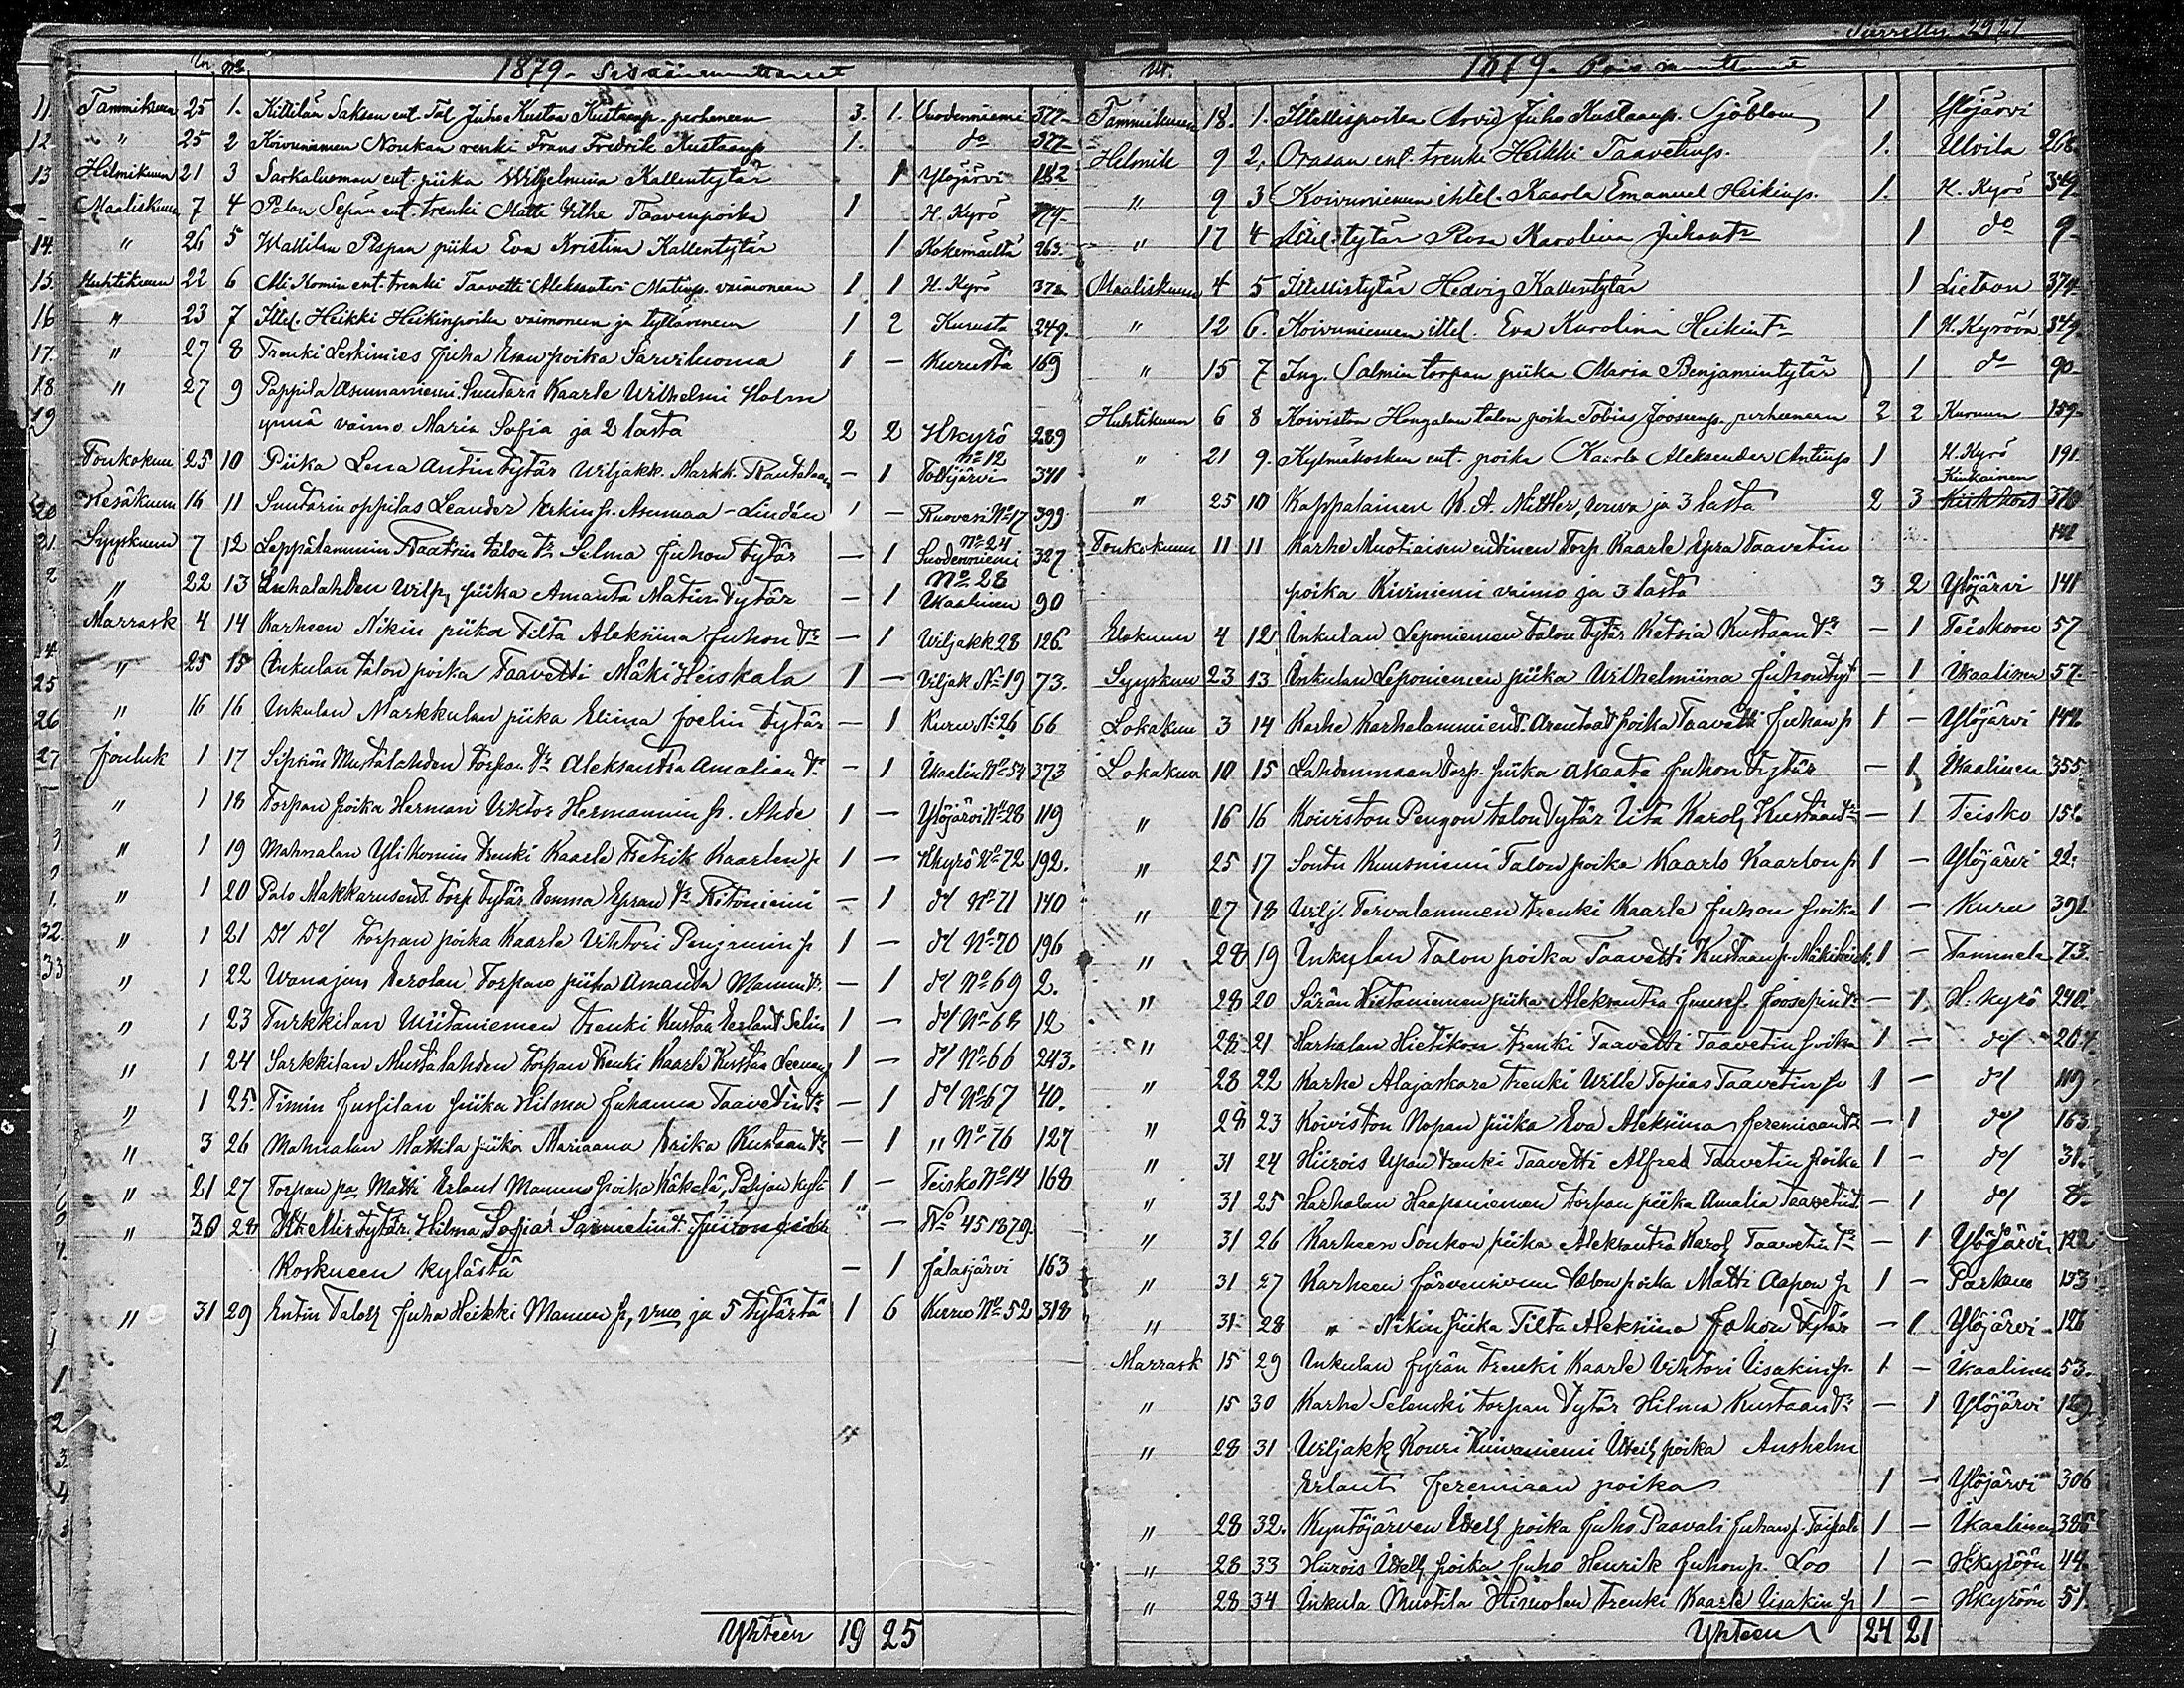 Siirretty 2927
1879 - Sisäänmuuttaneet
No
Tammikuun 25 1. Kittilän Saksan ent. Tal. Juho Kustaa Kustaanp. perheneen 3. 1. Suodenniemi 377
" 25 2 Koivuniemen Noukan renki Frans Fredrik Kustaanp 1. do 377
Helmikuun 21 3 Sarkalusman ent piika Wilhelmiina Kallentytär 1 Ylöjärvi 182
Maaliskuun 7 4 Palon Sepän ent. trenki Matti Taavenpoika 1 H. Kyrö
" 26 5 piika Eva Kristina Kallentytär 1 Kokemäeltä 263.
Huhtikuun 22 6 Ali Komin ent. trenki Taavetti Aleksanteri Matinp. vaimoneen 1 1 H. Kyrö 372
" 23 7 Ittel. Heikki Heikinpoika vaimoneen ja tyttärineen 1 2 Kurusta 249.
" 27 8 Trenki Leskimies Juha Esanpoika Sarviluoma 1 - Kurusta 169
" 27 9 Pappila Asumaniemi Suutari Kaarle Wilhelmi Holm
ynnä vaimo Maria Sofia ja 2 lasta 2 2 Hkyrö 289
Toukokuun 25 10 Piika Lena Antintytär Wiljakk. Markk. Rautalaan - 1 No 12 Tottijärvi 341
Kesäkuun 16 11 Suutarin oppilas Leander Erkinp. Asumaa - Lindén 1 - Ruovesi No 17 399
Syyskuun 7 12 Leppälammin Raatsin talon tr Selma Juhon tytär - 1 No 24 Suodenniemi 327
" 22 13 Luhalahden Wilp. piika Amanta Matin tytär - 1 No 28 Ikaalinen 90
Marrask 4 14 Karheen Nikin piika Tilta Aleksiina Juhon tr - 1 Viljakk 28 126
" 25 15 Inkulan talon poika Taavetti Mäki Heiskala 1 - Viljak No 19 73.
" 16 16 Inkulan Markkulan piika Elina Joelin tytär - 1 Kuru No 26 66
Jouluk 1 17 Sipsiön Mustalahden torpan tr Aleksantra Amalian tr - 1 Ikaalin No 54 373
" 1 18 Torpan poika Herman Viktor Hermannin p. Ahde 1 - Ylöjärvi No 28 119
" 1 19 Mahnalan Ylikomin trenki Kaarle Fetrik Kaarlen p 1 - Hkyrö No 72 192.
" 1 20 Palo Makkarusent. torp tytär Emma Epran tr Ristoniemi - 1 do No 71 140
" 1 21 Do Do torpan poika Kaarle Vihtori Penjamin p 1 - do No 70 196
" 1 22 Wanajan Eerolan Torpan piika Amanda Mannn tr - 1 do No 69 2.
" 1 23 Turkkilan Uiitaniemen trenki Kustaa Eerlant Selin 1 - do No 68 12
" 1 24 Sarkkilan Mustalahden torpan trenki Kaarle Kustaa 1 - do No 66 243.
" 1 25 Timin Jussilan piika Hilma Juhanna Taavetin tr - 1 do No 67 40.
" 3 26 Mahnalan Mattila piika Mariaana Erika Kustaan tr - 1 " No 76 127
" 21 27 Torpan pa Matti Erlant Mannn poika Käkelä, Pohjan kylä 1 - Teisko No 14 168
" 30 28 Itt. tytär Hilma Sofia Samelin t. - No 45 1879.
Koskueen kylästä - 1 Jalasjärvi 163
" 31 29 Entin Talon Juha Heikki Mannn p, vmo ja 5 tytärtä 1 6 Kuru No 52 318
Yhteen 19 25
1879. Pois muuttanut
Tammikuun 18. 1. Ittellispoika Arvid Juho Kustaanp. Sjöblom 1 Ylöjärvi
Helmik 9 2. Orasan ent. trenki Heikki Taavetinp. 1. Ulvila 268.
" 9 3 Koivuniemen ittel. Kaarla Emanuel Heikinp. 1. H. Kyrö 349
" 17 4 Ittel. tytär Rosa Karolina Juhontr 1 do 9
Maaliskuun 4 5 Ittellistytär Hedvig Kallentytär 1 Lieteon 374
" 12 6. Koivuniemen ittel. Eva Karolina Heikintr 1 H. Kyröön 349
" 15 7 Ing. Salmin torpan piika Maria Benjamintytär 1 do 90
Huhtikuun 6 8 Koiviston Hongalan talon poika Tobias Joosepinp. perheeneen 2 2 Kuruun 159
" 21 9. Kylmäkosken ent. poika Kaarlo Aleksander Antinp 1 H. Kyrö 191.
" 25 10 Kappalainen K. A. Mittler, rouva ja 3 lasta 2 3 Kiukainen 370
Toukokuun 11 11 Karhe Muotiaisen entinen Torp Kaarle Epra Taavetin 142
poika Kiviniemi vaimo ja 3 lasta 3 2 Ylöjärvi 141
Elokuun 4 12 Inkulan Leponiemen talon tytär Ketsia Kustaan tr - 1 Teiskoon 57
Syyskuu 23 13 Inkulan Leponiemen piika Wilhelmiina Juhon tyt - 1 Ikaalinen 57
Lokakuu 3 14 Karhe Karhelammi ent. Arentaat poika Taavetti Juhan p 1 - Ylöjärvi 142
Lokakuu 10 15 Lahdenmaan torp. piika Akaata Juhon tytär - 1 Ikaalinen 355
" 16 16 Koiviston Pengon talon tytär Iita Karol Kustaan tr - 1 Teisko 152
" 25 17 Sontu Kuusniemi Talon poika Kaarlo Kaarlon p 1 - Ylöjärvi 22.
" 27 18 Wilj. Tervalammen trenki Kaarle Juhon poika 1 - Kuru 391.
" 28 19 Inkulan Talon poika Taavetti Kustaan p. Mäkiheisk. 1 - Tammela 73.
" 28 20 Särän Hietaniemen piika Aleksantra Joosepin tr - 1 H. kyrö 240
" 28 21 Harhalan Hietikon trenki Taavetti Taavetin poika 1 - do 204.
" 28 22 Karhe Alajaskara trenki Wille Topias Taavetin p 1 - do 119
" 28 23 Koiviston Nopan piika Eva Aleksiina Jeremiaan tr - 1 do 163
" 31 24 Hiirois Upan trenki Taavetti Alfred Taavetin poika 1 - do 31.
" 31 25 Harhalan Haapaniemen torpan piika Amalia Taavetin t. - 1 do 8.
" 31 26 Karheen Soukon piika Aleksantra Karol Taavetin tr - 1 Ylöjärvi 122
" 31 27 Karheen Järvensivun talon poika Matti Aapon p 1 - Parkano 133
" 31 28 " Nikin piika Tilta Aleksiina Johon tytär - 1 Ylöjärvi 126
Marrask 15 29 Inkulan Jyrän trenki Kaarle Vihtori Iisakin p. 1 - Ikaalinen 53.
" 15 30 Karhe Selenski torpan tytär Hilma Kustaan tr - 1 Ylöjärvi 129
" 28 31 Viljakk Kouri Kuivaniemi poika Anshelm
Erlant Jeremiaan poika 1 - Ylöjärvi 306
" 28 32. Kyntöjärven poika Juho Paavali Juhan p. Taipale 1 - Ikaalinen 385
" 28 33 Hiirois poika Juho Henrik Juhonp. Loo 1 - Hkyröön 44.
" 28 34 Inkula Muotila trenki Kaarle Iisakin p 1 - Hkyröön 51.
Yhteen 24 21